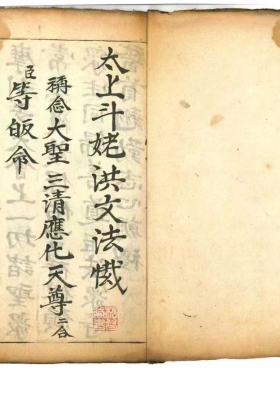 太上斗姥洪文法懺
稱念大聖三清應化天尊二合
臣等皈命